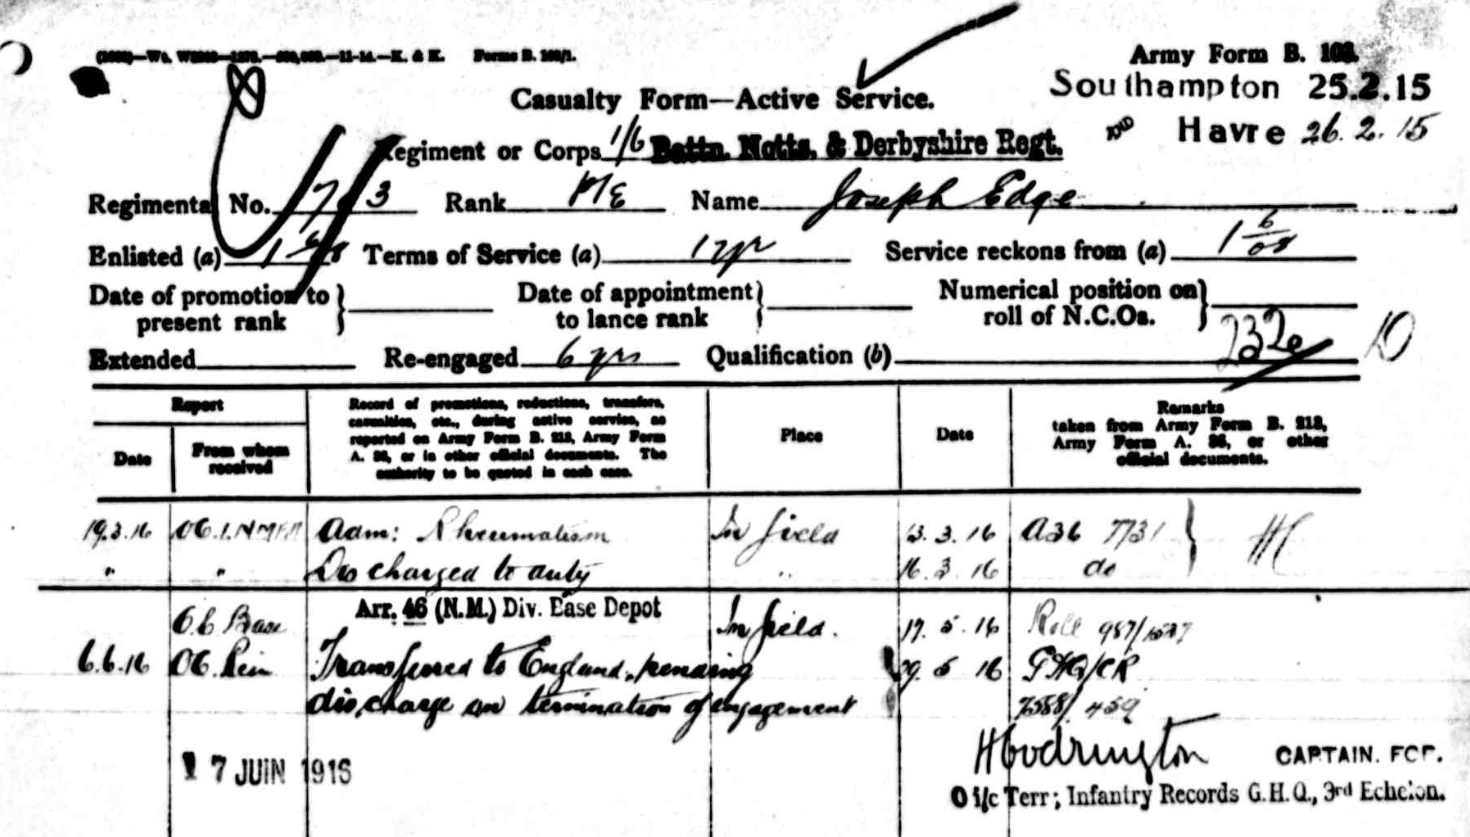 Forms B. 103/1.
Army Form B. 103.
Casualty Form—Active Service.
Southampton 25.2.15
AND Havre 26.2.15
Regiment or Corps 1/6 Battn. Notts. & Derbyshire Regt.
Regimental No. Rank Pte Name Joseph Edge
Enlisted (a) Terms of Service (a) 1 yr Service reckons from (a) 1 6/08
Date of promotion to present rank } Date of appointment to lance rank } Numerical position on roll of N.C.Os. }
Extended Re-engaged 6 yrs Qualification (b) 10
Report
Date
From whom received
Record of promotions, reductions, transfers, casualties, etc., during active service, as reported on Army Form B. 213, Army Form A. 36, or in other official documents. The authority to be quoted in each case.
Place
Date
Remarks taken from Army Form B. 213, Army Form A. 36, or other official documents.
19.3.16 OC.1.NMFA Adm: Rheumatism In field 13.3.16 A36 7731 }
" " Discharged to duty " 16.3.16 do
Arr. 46 (N.M.) Div. Base Depot
Base In field. 17.5.16 Roll
6.6.16 OC. Rein Transferred to England, pending 29 5 16 GHQ/CR
discharge on termination of engagement 7588/459
17 JUIN 1916
CAPTAIN. FOR.
O i/c Terr; Infantry Records G.H.Q., 3rd Echelon.